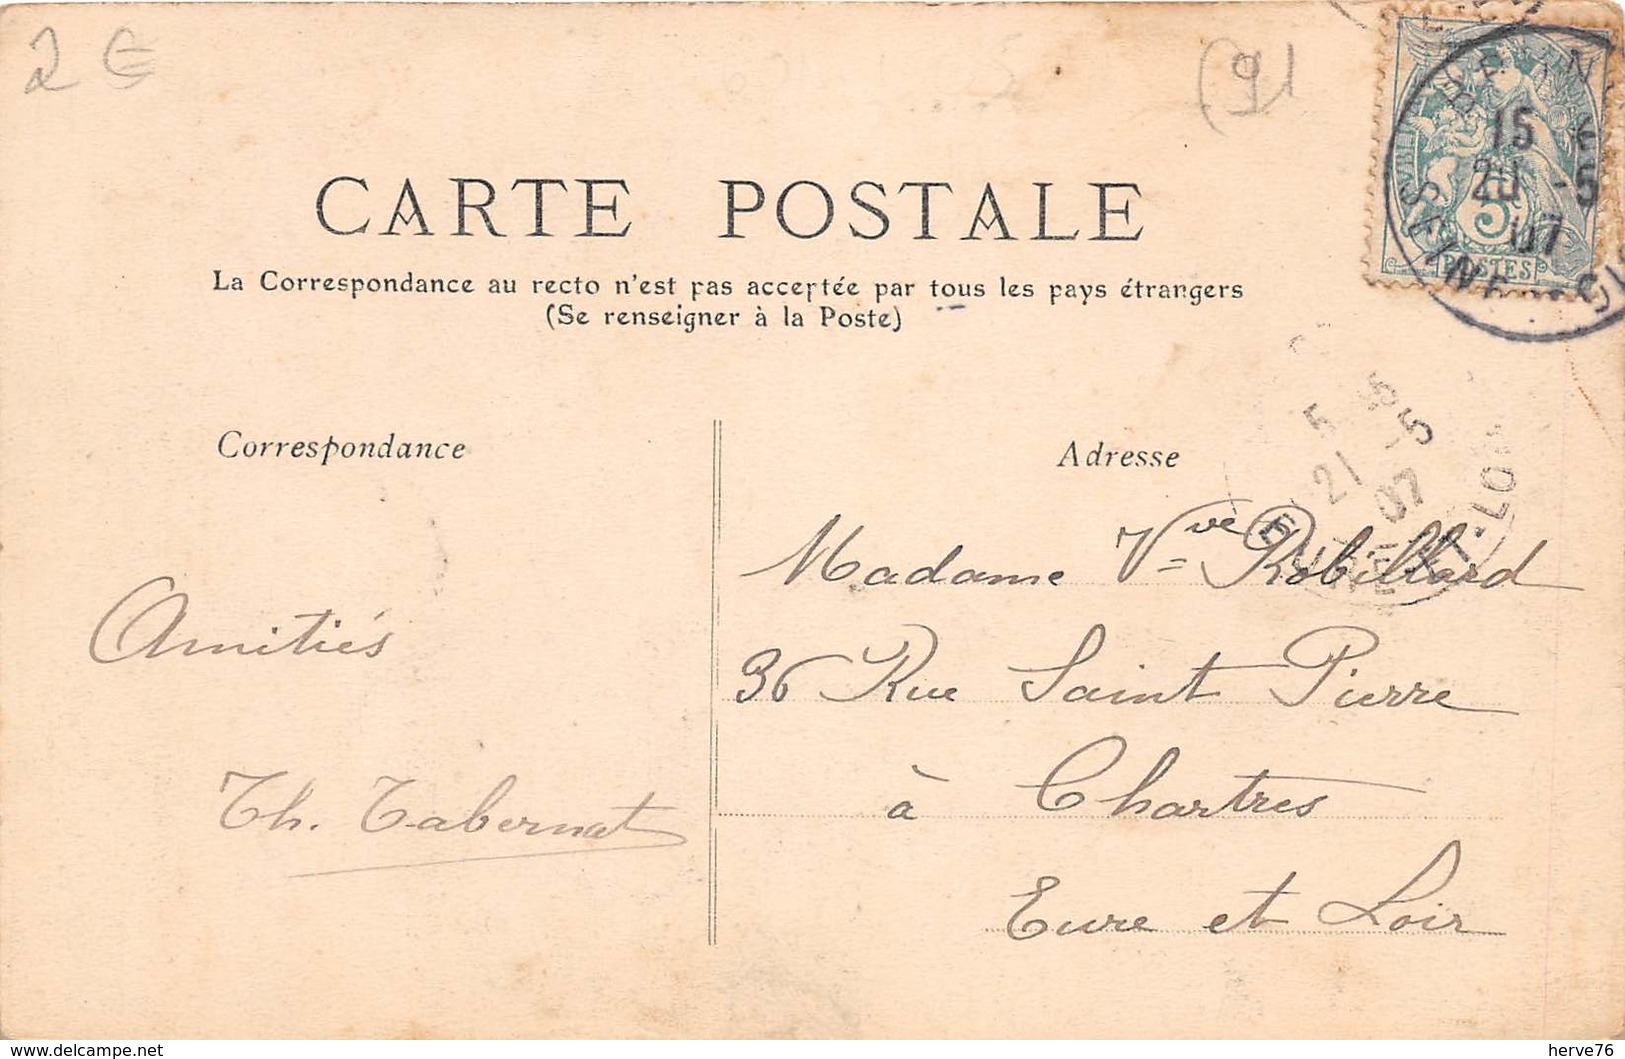 2 €
(91
CARTE POSTALE
La Correspondance au recto n'est pas acceptée par tous les pays étrangers
(Se renseigner à la Poste)
15
20 -5
07
SEINE
5
POSTES
Correspondance
Adresse
5
21 -5
07
EURE-ET-LOIR
Amitiés
Th. Tabernat
Madame Vve Robillard
36 Rue Saint Pierre
à Chartres
Eure et Loir
www.delcampe.net
herve76